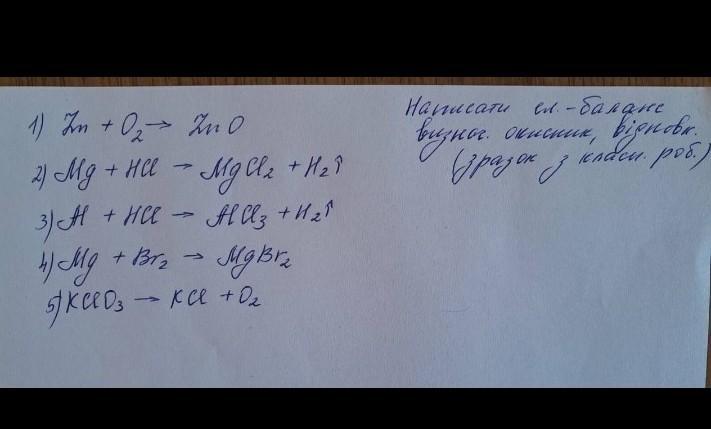 1) Zn + O₂ → ZnO
2) Mg + HCl → MgCl₂ + H₂↑
3) Al + HCl → AlCl₃ + H₂↑
4) Mg + Br₂ → MgBr₂
5) KClO₃ → KCl + O₂
Написати ел.-баланс
визнач. окисник, відновн.
(зразок з класн. роб.)